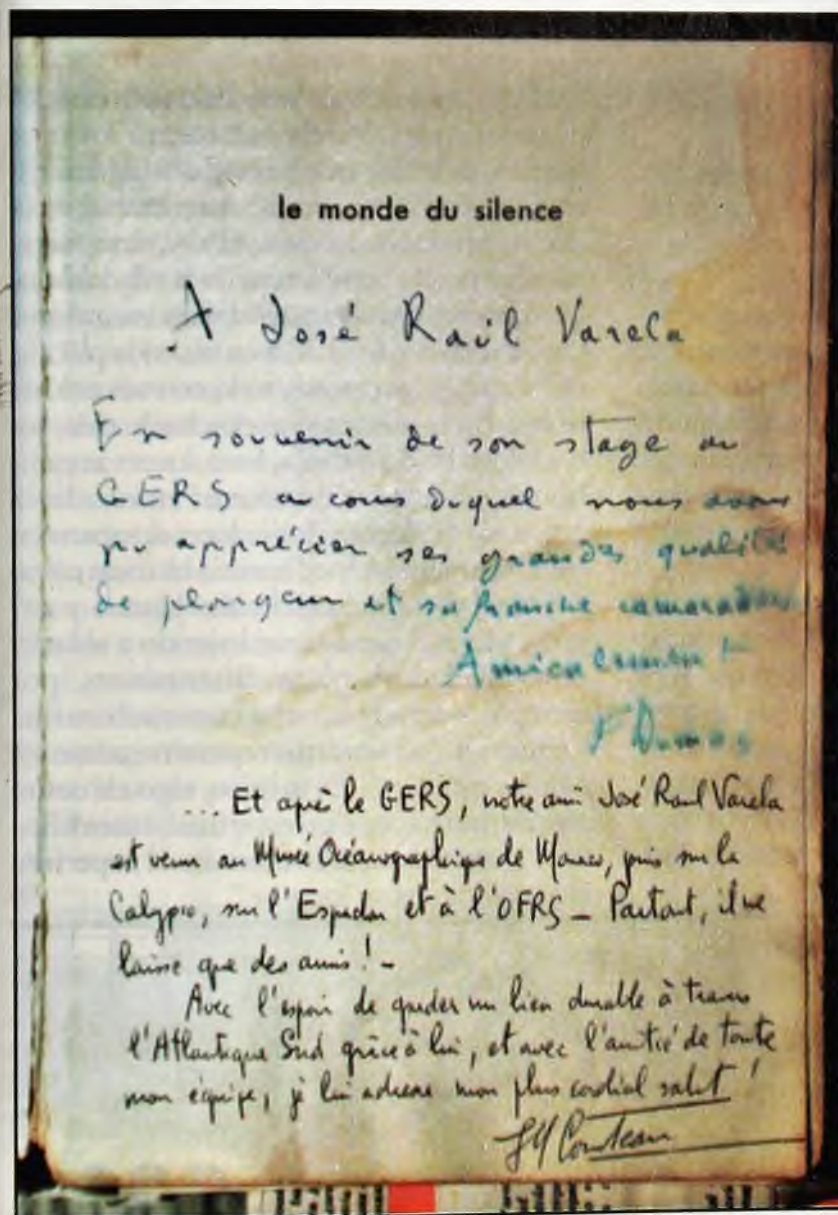 le monde du silence
A José Raúl Varela
En souvenir de son stage au
GERS au cours duquel nous avons
pu apprécier ses grandes qualités
de plongeur et sa franche camaraderie
Amicalement
F Dumas
... Et après le GERS, notre ami José Raul Varela
est venu au Musée Océanographique de Monaco, puis sur la
Calypso, sur l'Espadon et à l'OFRS – Partout, il ne
laisse que des amis ! –
Avec l'espoir de garder un lien durable à travers
l'Atlantique Sud grâce à lui, et avec l'amitié de toute
mon équipe, je lui adresse mon plus cordial salut !
JY Cousteau